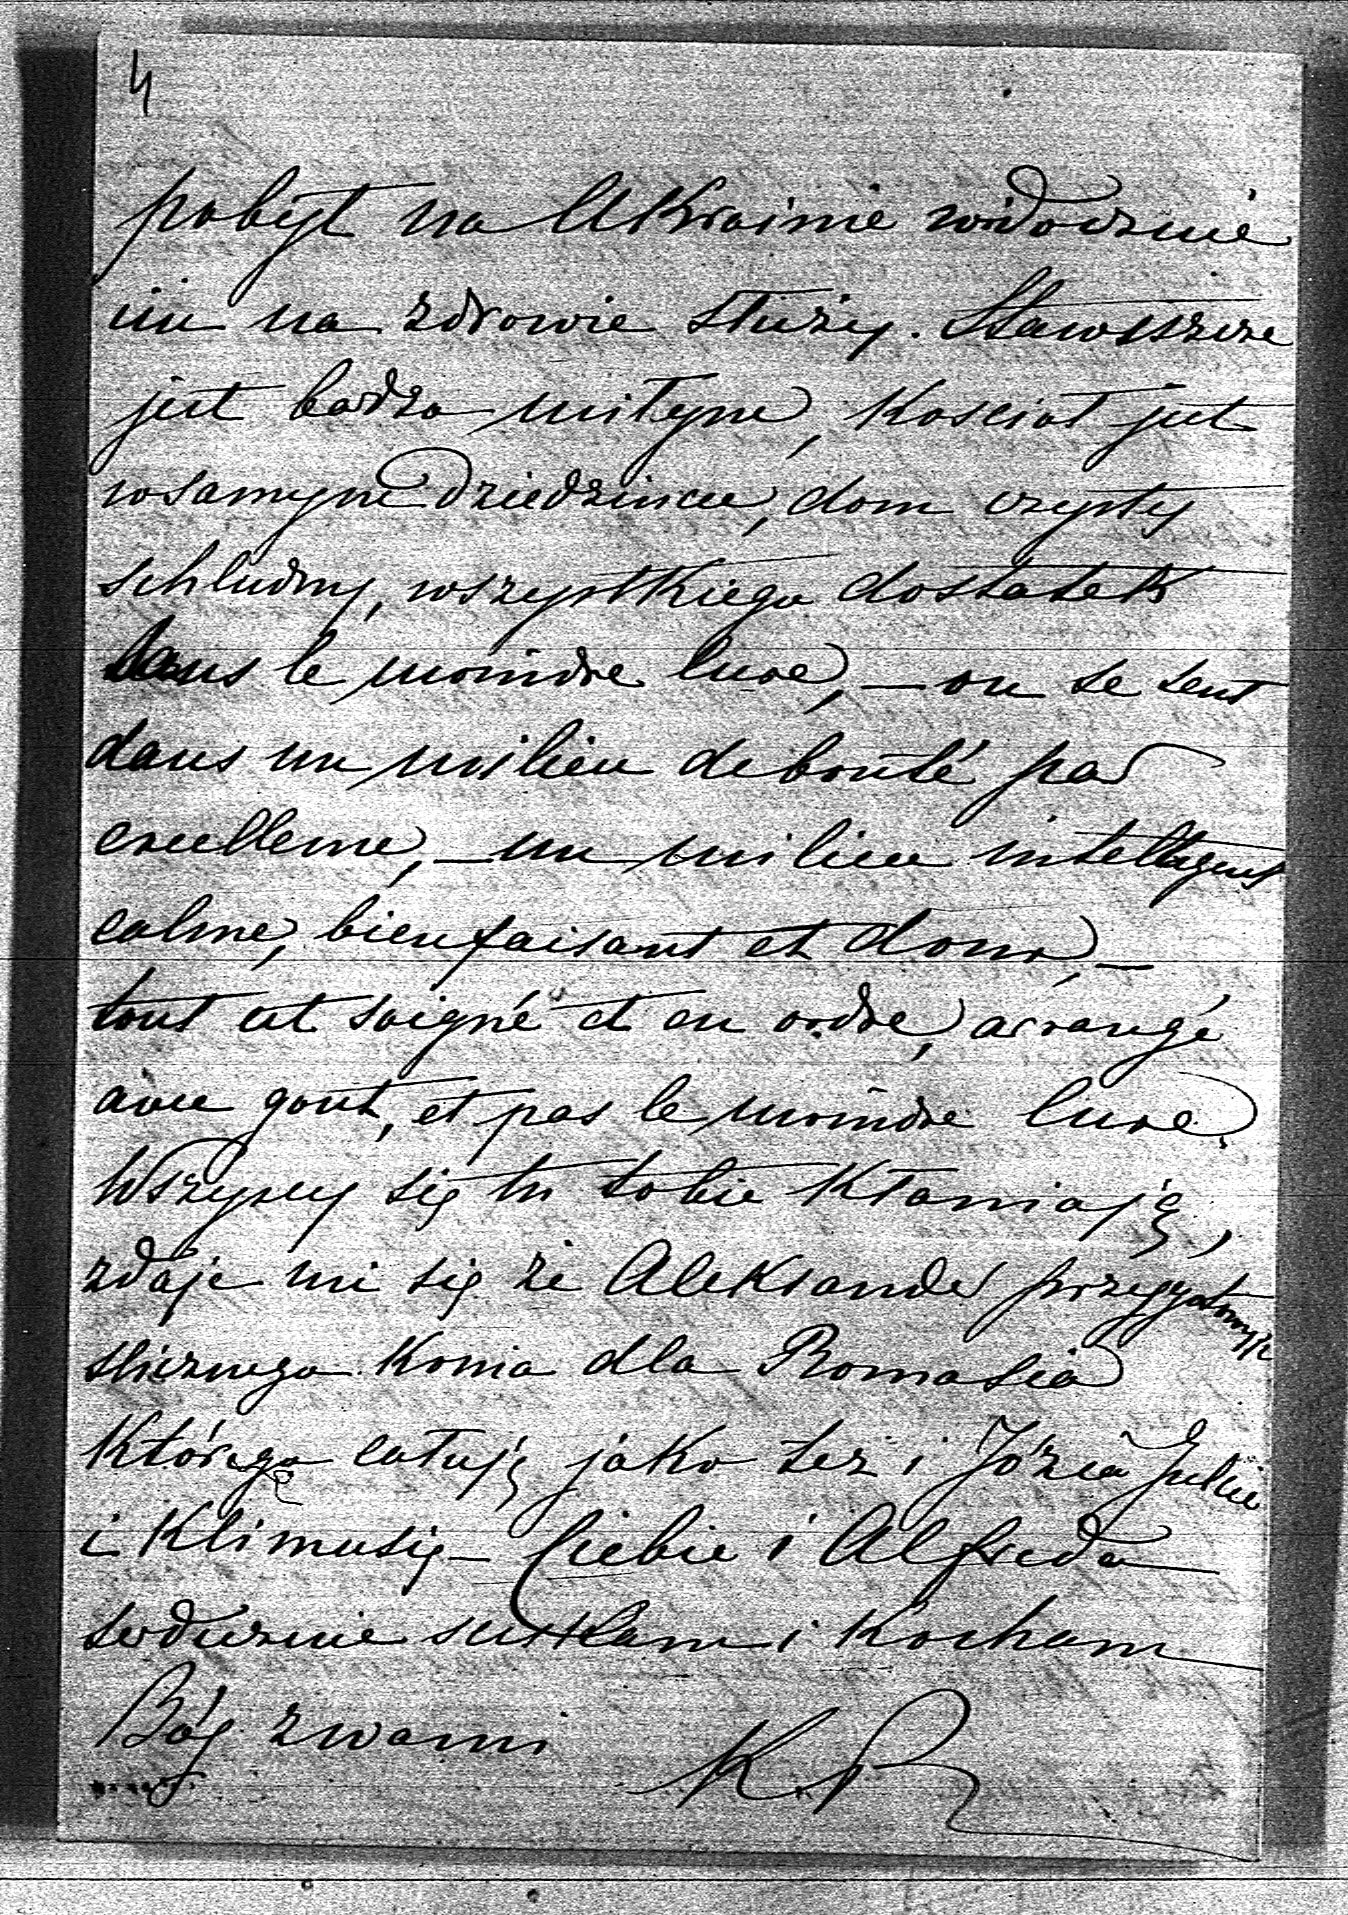 4
pobyt na Ukrainie widocznie
im na zdrowie służy. Stawiszcze
jest bardzo miłym, Kosciół jest
w samym dziedzincu, dom czysty
schludny, wszystkiego dostatek
sans le moindre luxe, — on se sent
dans un milieu de bonté par
excellence, — un milieu intelligent
calme, bienfaisant et doux, —
tout est soigné et en ordre, arrangé
avec gout, et pas le moindre luxe.
Wszyscy się tu tobie Kłaniają,
zdaje mi się że Aleksander
slicznego Konia dla Romasia
Którego całuję jako też i Józia Julcię
i Klimusię — Ciebie i Alfreda
serdecznie sciskam i Kocham
Bóg z wami K. P.